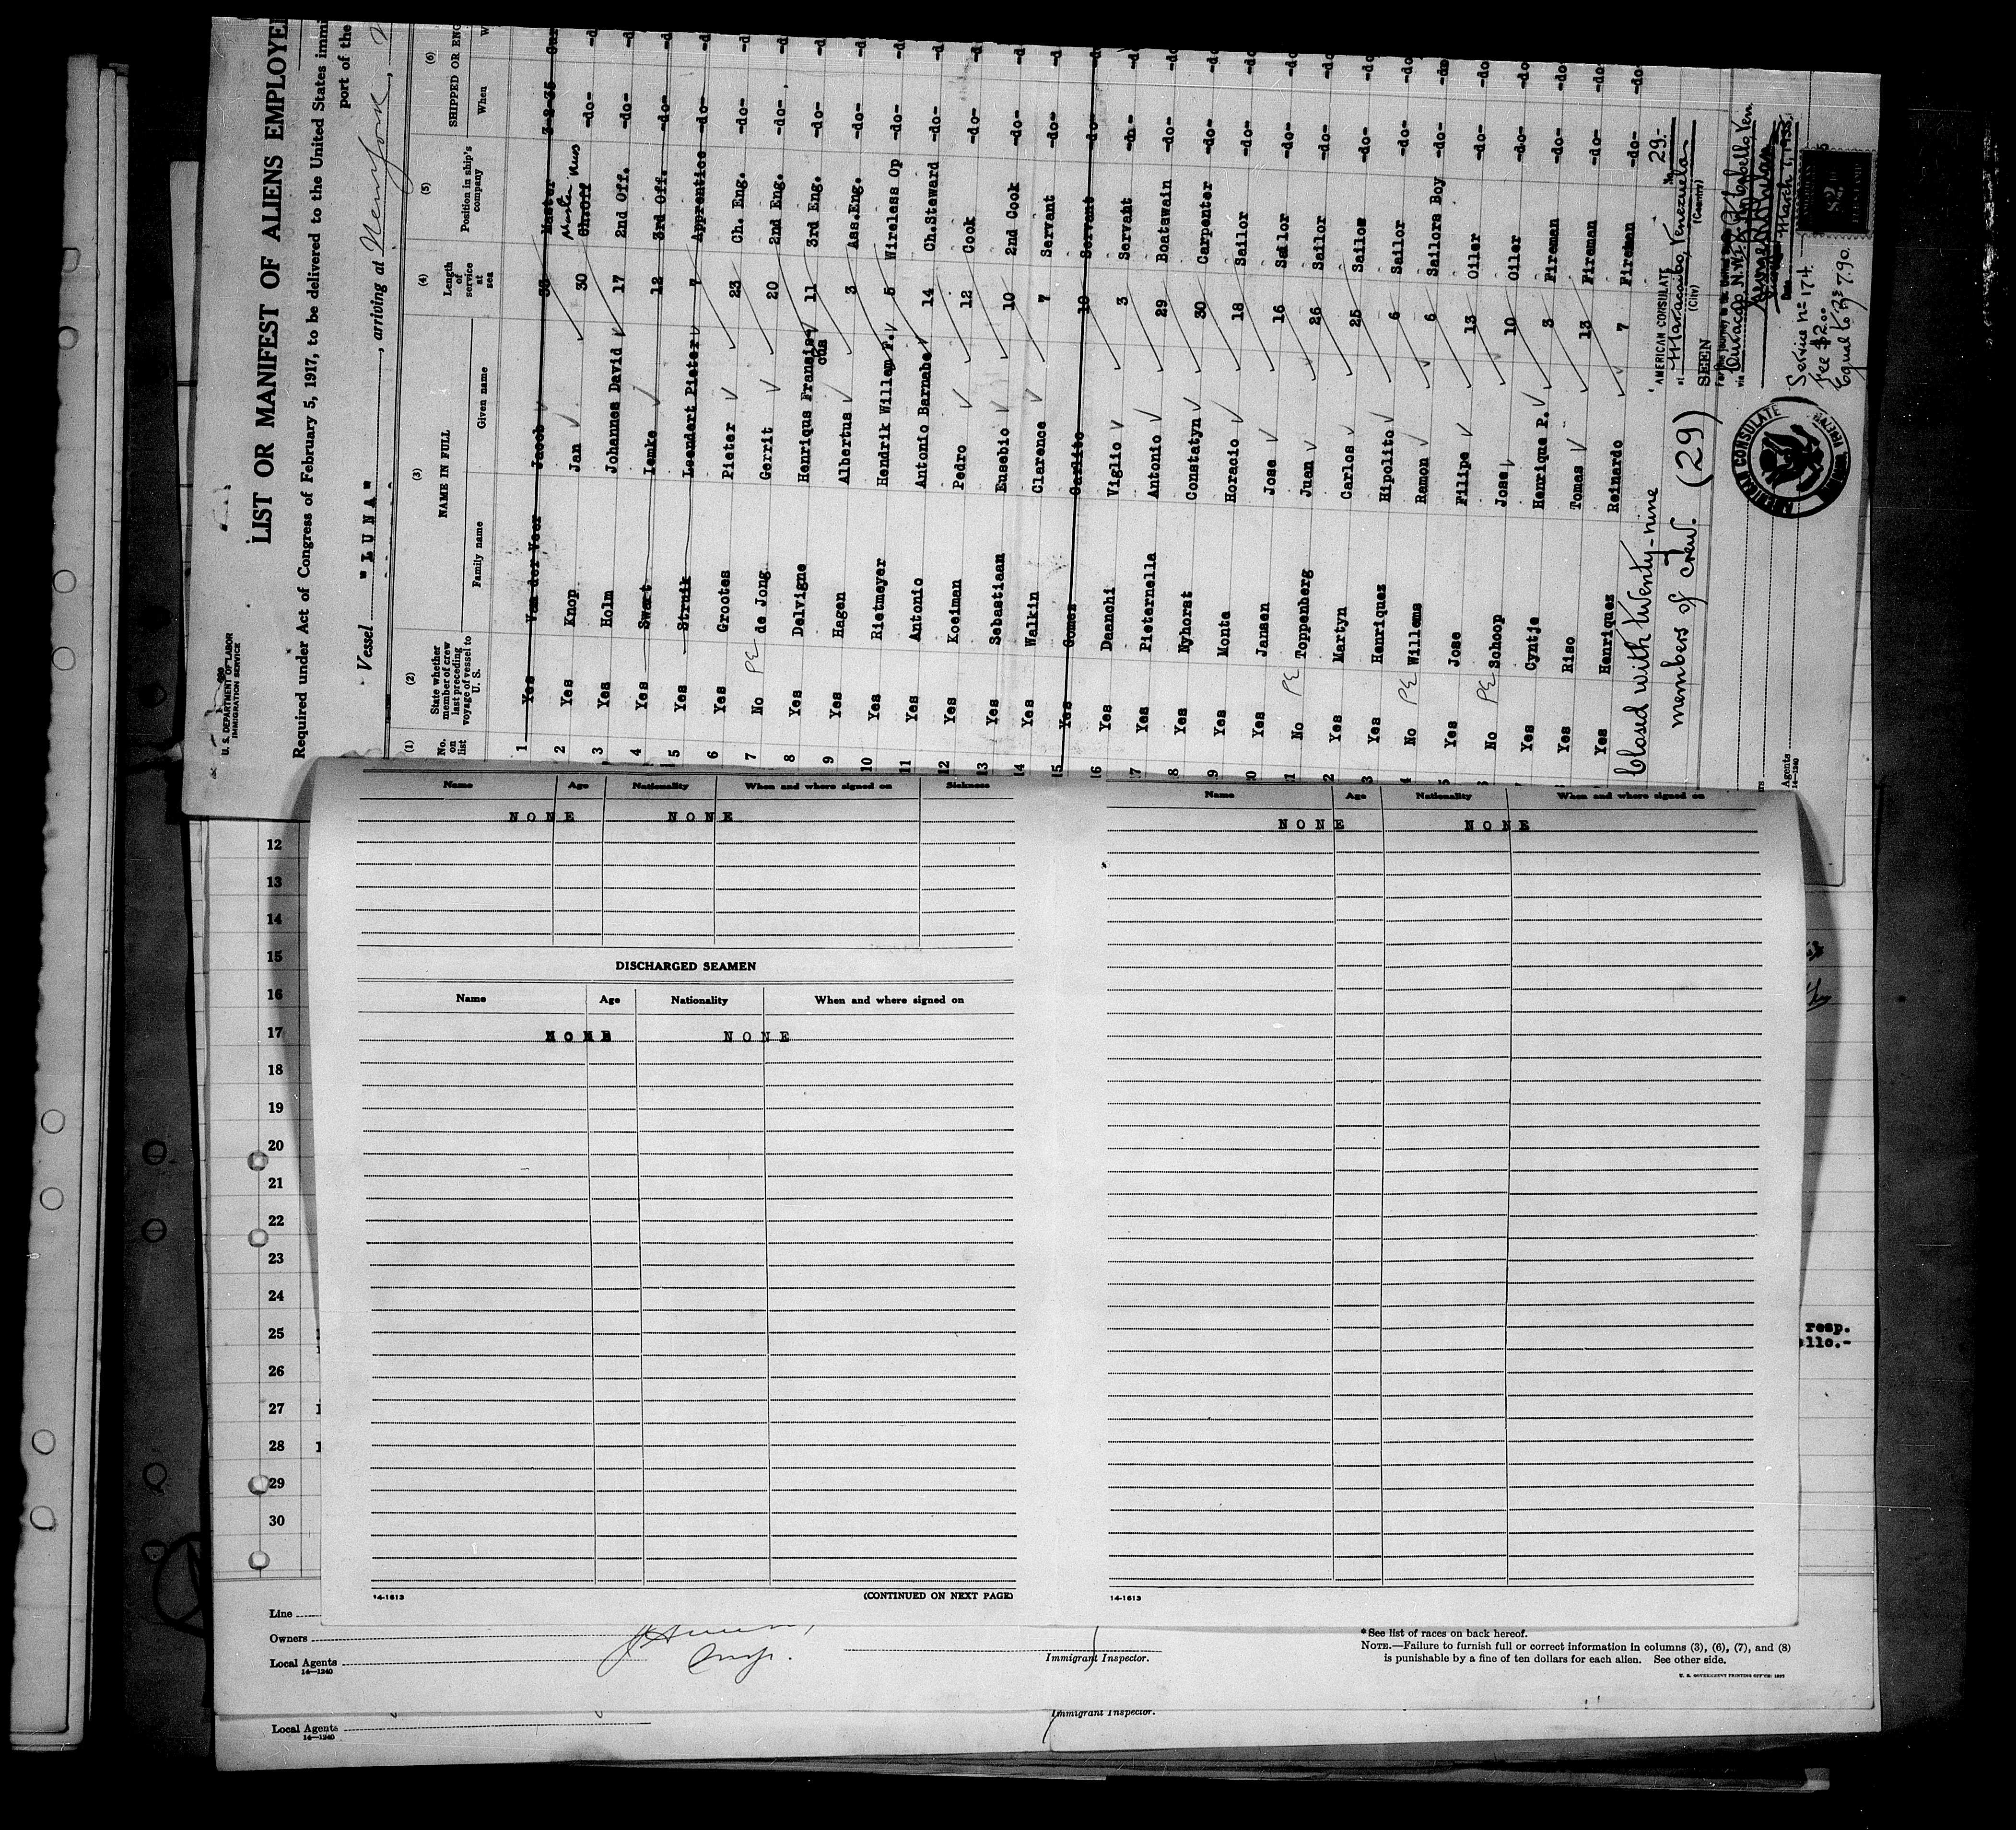 U. S. DEPARTMENT OF LABOR
IMMIGRATION SERVICE
LIST OR MANIFEST OF ALIENS EMPLOYE
Required under Act of Congress of February 5, 1917, to be delivered to the United States immi
port of the
Vessel "LUNA" , arriving at New York,
(1) (2) (3) (4) (5) (6)
No. on list State whether member of crew last preceding voyage of vessel to U. S. NAME IN FULL Length of service at sea Position in ship's company SHIPPED OR ENG
Family name Given name When W
1 Yes Van der Veer Jacob 33 Master 3-2-35 Cur
2 Yes Knop Jan 30 Ch.Off Master -do- -d
3 Yes Holm Johannes David 17 2nd Off. -do- -d
4 Yes Swart Iemke 12 3rd Off. -do- -d
5 Yes Struik Leendert Pieter 7 Apprentice -do- -d
6 Yes Grootes Pieter 23 Ch. Eng. -do- -do
7 No PE de Jong Gerrit 20 2nd Eng. -do- -do
8 Yes Delvigne Henriqus Fransis cus 11 3rd Eng. -do- -do
9 Yes Hagen Albertus 3 Ass.Eng. -do- -do
10 Yes Rietmeyer Hendrik Willem F. 5 Wireless Op -do- -do
11 Yes Antonio Antonio Barnabe 14 Ch.Steward -do- -d
12 Yes Koeiman Pedro 12 Cook -do- -d
13 Yes Sebastiaan Eusebio 10 2nd Cook -do- -do
14 Yes Walkin Clarence 7 Servant -do- -d
15 Yes Gomez Carlito 10 Servant -do- -do
16 Yes Daanchi Viglio 3 Servant -do- -do
17 Yes Pieternella Antonio 29 Boatswain -do- -do
8 Yes Nyhorst Constatyn 30 Carpenter -do- -do
9 Yes Monte Horacio 18 Sailor -do- -do
0 Yes Jansen Jose 16 Sailor -do- -do
1 No PE Toppenberg Juan 26 Sailor -do- -do
2 Yes Martyn Carlos 25 Sailos -do- -do
3 Yes Henriquez Hipolito 6 Sailor -do- -do
4 No PE Willems Ramon 6 Sailors Boy -do- -do
5 Yes Jose Filipe 13 Oiler -do- -do
6 No PE Schoop Jose 10 Oiler -do- -do
Yes Cyntje Henrique P. 3 Fireman -do- -do
Yes Riso Tomas 13 Fireman -do- -do
Yes Henriquez Reinardo 7 Fireman -do- -do
Closed with twenty-nine
members of crew. (29)
AMERICAN CONSULATE No. 29.-
at Maracaibo, Venezuela
(City) (Country)
SEEN
via Curacao N.W.I. & Pto Cabello Ven.
Date March 1, 1935
Service no 174
Fee $2.00
Equal to Bs 7.90.
AMERICAN CONSULATE
$2
Agents
14-1240
Name Age Nationality When and where signed on Sickness
NONE NONE
DISCHARGED SEAMEN
Name Age Nationality When and where signed on
NONE NONE
14-1613 (CONTINUED ON NEXT PAGE)
Name Age Nationality When and where signed on
NONE NONE
14-1613
12
13
14
15
16
17
18
19
20
21
22
23
24
25
26
27
28
29
30
resp.
ello.-
Line
Owners
Local Agents
14-1240
Immigrant Inspector.
*See list of races on back hereof.
NOTE.—Failure to furnish full or correct information in columns (3), (6), (7), and (8)
is punishable by a fine of ten dollars for each alien. See other side.
U. S. GOVERNMENT PRINTING OFFICE
Local Agents
14-1240
Immigrant Inspector.